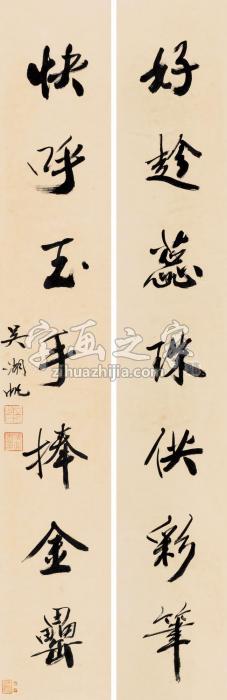 好趁蕊珠供彩筆
快呼玉手捧金罍
吳湖帆
字画之家
zihuazhijia.com